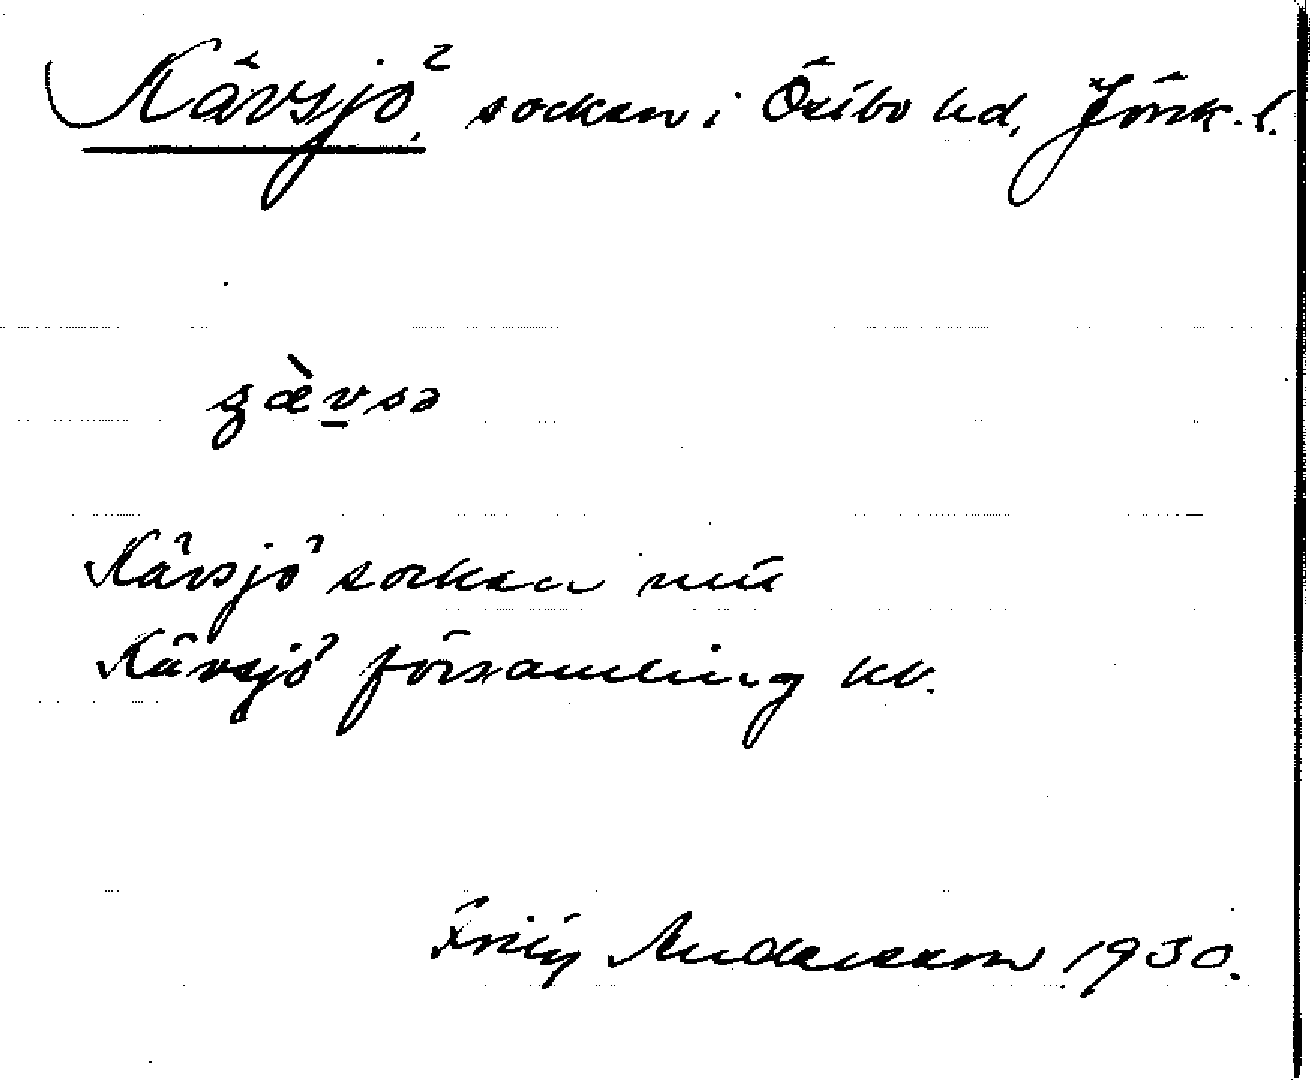 Kävsjö, socken i Östbo hd, Jönk. l.
gæ̀vsə
Kävsjö socken utii
Kävsjö församling kv.
Frity Andersson 1930.